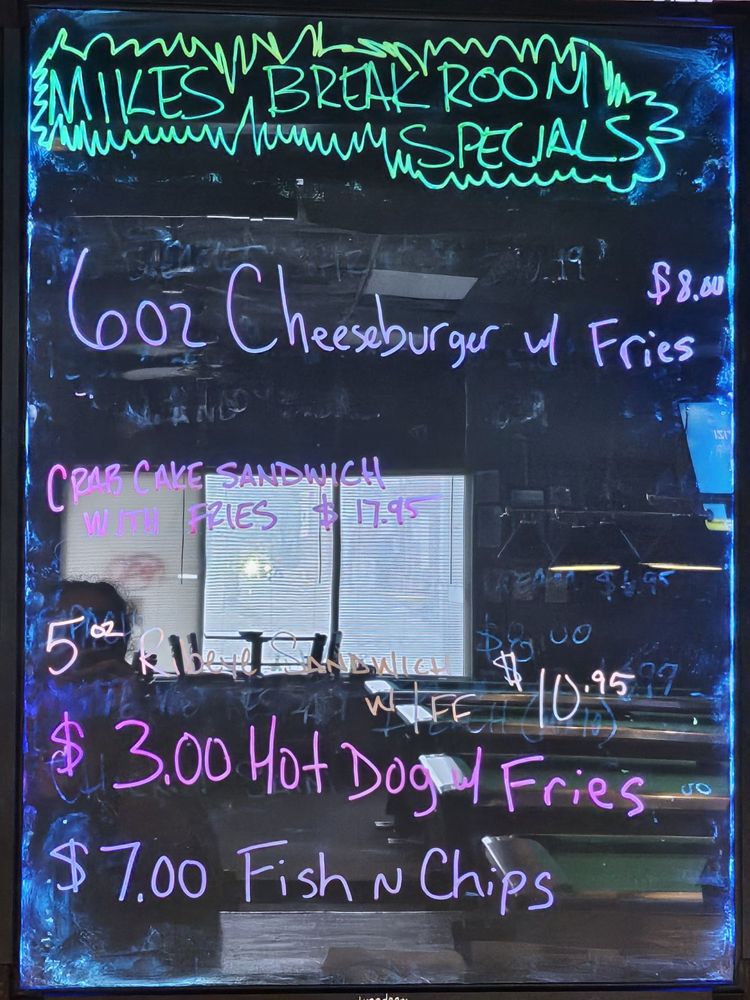 MIKES BREAK ROOM
SPECIALS
$8.00
6oz Cheeseburger w/ Fries
CRAB CAKE SANDWICH
WITH FRIES $ 17.95
5 oz Ribeye SANDWICH $10.95
W/ FF
$ 3.00 Hot Dog w/ Fries
$7.00 Fish N Chips